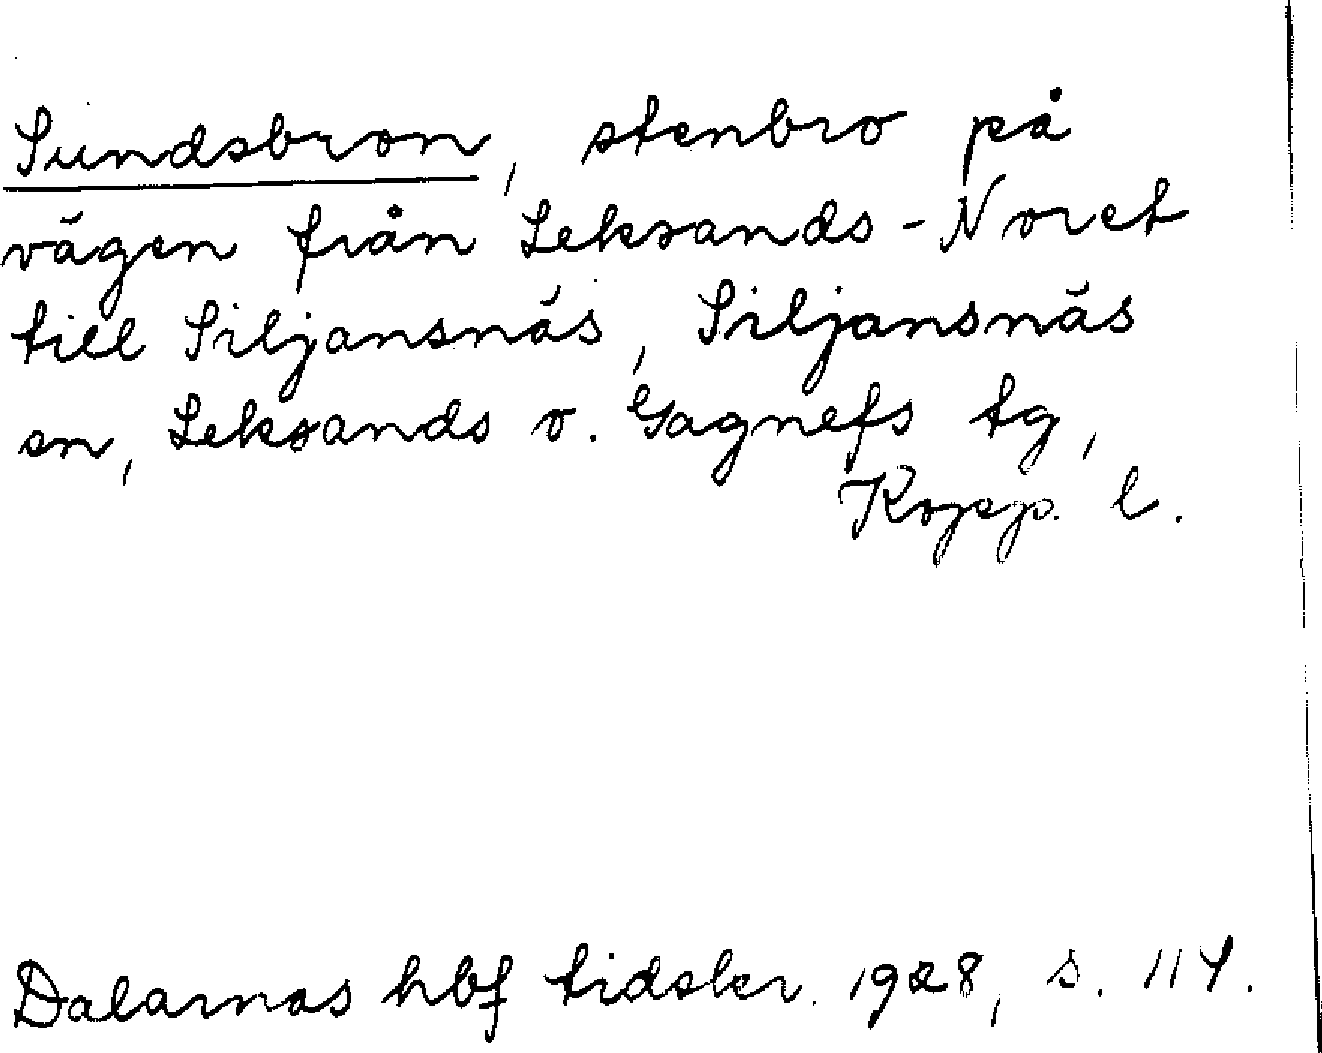 Sundsbron, stenbro på
vägen från Leksands-Noret
till Siljansnäs, Siljansnäs
sn, Leksands o. Gagnefs tg,
Kopp. l.
Dalarnas hbf tidskr. 1928, s. 114.